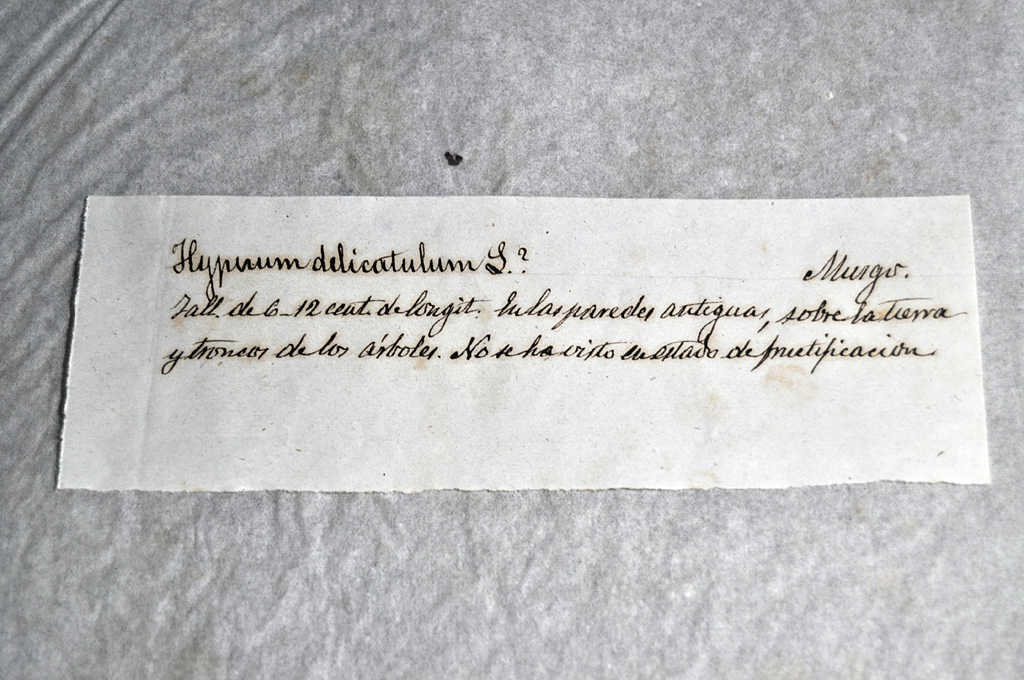 Hypnum delicatulum L.? Musgo.
Tall. de 6-12 cent. de longit. En las paredes antiguas, sobre la tierra
y troncos de los árboles. No se ha visto en estado de fructificacion.